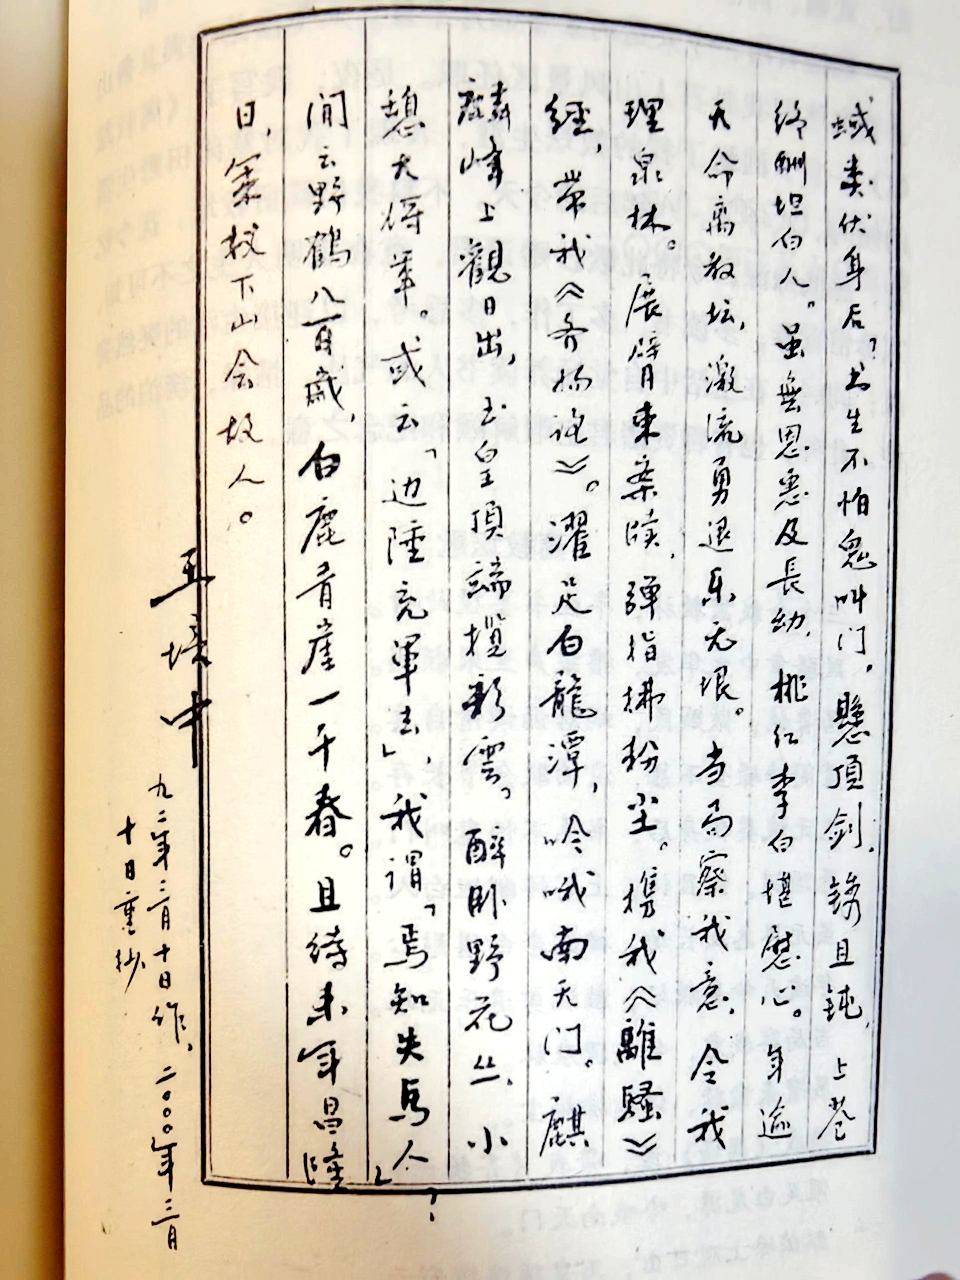 蜮类伏身后？书生不怕鬼叫门，悬頂剑，锈且鈍，上苍
终酬坦白人。虽無恩惠及長幼，桃红李白堪慰心。年逾
天命离教坛，激流勇退乐无垠。当局察我意，令我
理泉林。展臂束案牍，弹指拂粉尘。携我《離騷》
經，带我《齐物论》。濯足白龍潭，吟哦南天门。麒
麟峰上觀日出，玉皇頂端揽彩雲，醉卧野花丛，小
憩大将军。或云「边陲充軍去」，我谓「焉知失马人」？
闲云野鹤八百歲，白鹿青崖一千春。且待来年昌隆
日，策杖下山会故人。
王境中
九二年三月十日作，二〇〇〇年三月
十日重抄